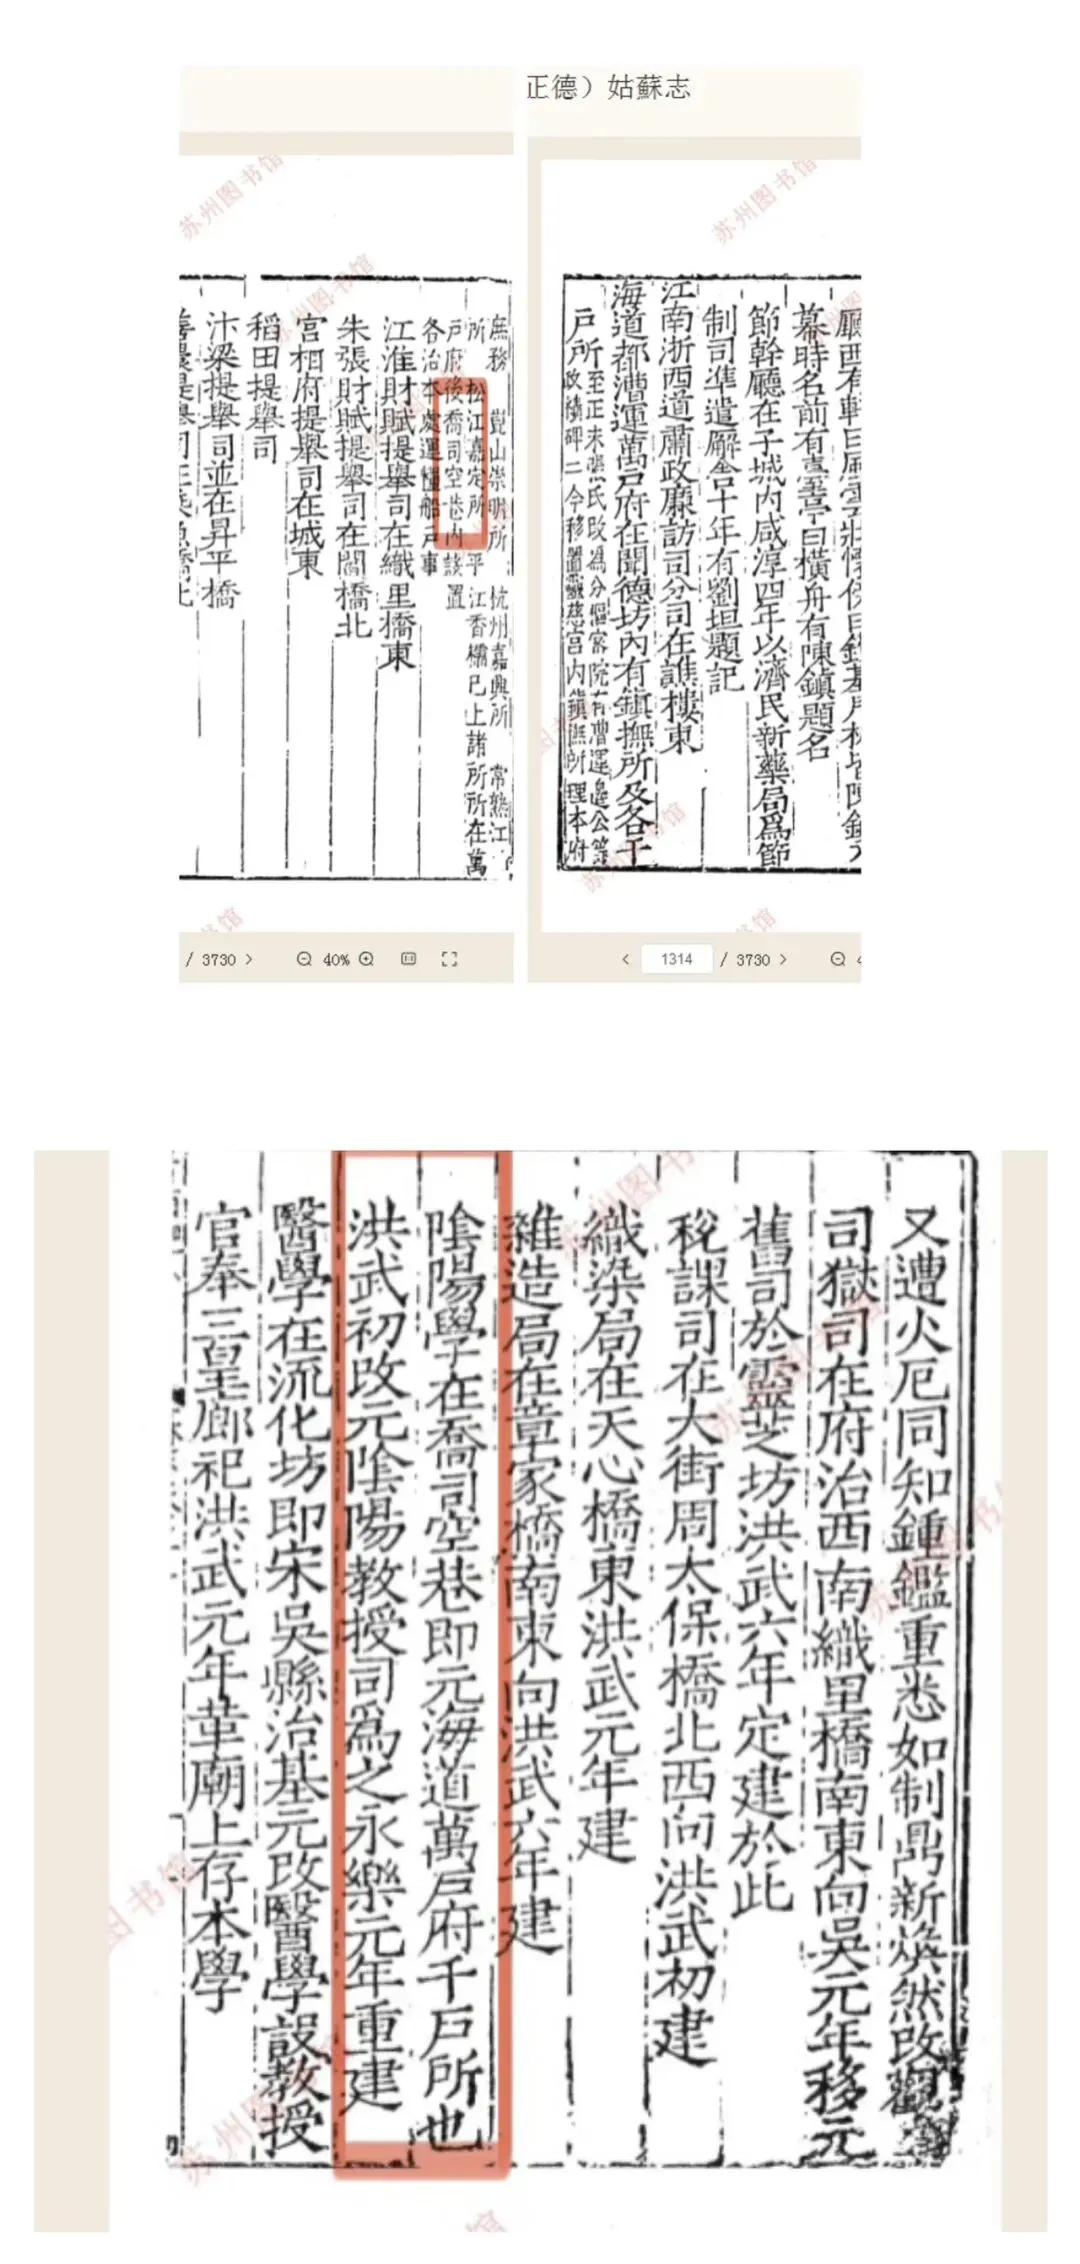 正德）姑蘇志
幕時名前有臺亭曰橫舟有陳鎮題名
節幹廳在子城內咸淳四年以濟民新藥局爲節
制司準遣廨舍十年有劉坦題記
江南浙西道肅政廉訪司分司在譙樓東
海道都漕運萬戶府在聞德坊內有鎮撫所及各千
戶所至正末張氏改為分樞密院有漕運邊公等
政績碑二今移置靈慈宮內鎮撫所理本府
庶務 崑山崇明所 杭州嘉興所 常熟江
所 松江嘉定所 平江香糯已上諸所所在萬
戶府後喬司空巷內設置
各治本處運糧船戶事
江淮財賦提舉司在織里橋東
朱張財賦提舉司在閶橋北
宮相府提舉司在城東
稻田提舉司
汴梁提舉司並在昇平橋
苏州图书馆
苏州图书馆
/ 3730 > 40%
< 1314 / 3730 >
又遭火厄同知鍾鑑重悉如制鼎新煥然改觀
司獄司在府治西南織里橋南東向吳元年移元
舊司於靈芝坊洪武六年定建於此
稅課司在大街周太保橋北西向洪武初建
織染局在天心橋東洪武元年建
雜造局在章家橋南東向洪武六年建
陰陽學在喬司空巷即元海道萬戶府千戶所也
洪武初改元陰陽教授司爲之永樂元年重建
醫學在流化坊即宋吳縣治基元改醫學設教授
官奉三皇廊祀洪武元年革廟上存本學